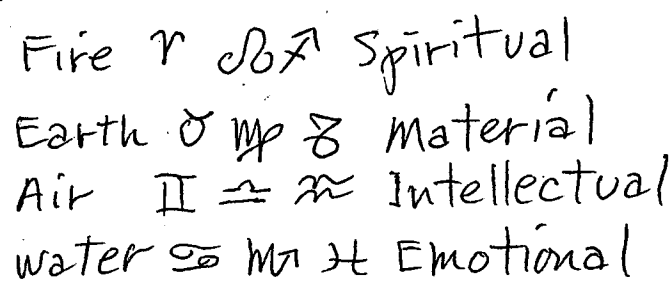 Fire ♈ ♌ ♐ Spiritual
Earth ♉ ♍ ♑ Material
Air ♊ ♎ ♒ Intellectual
Water ♋ ♏ ♓ Emotional